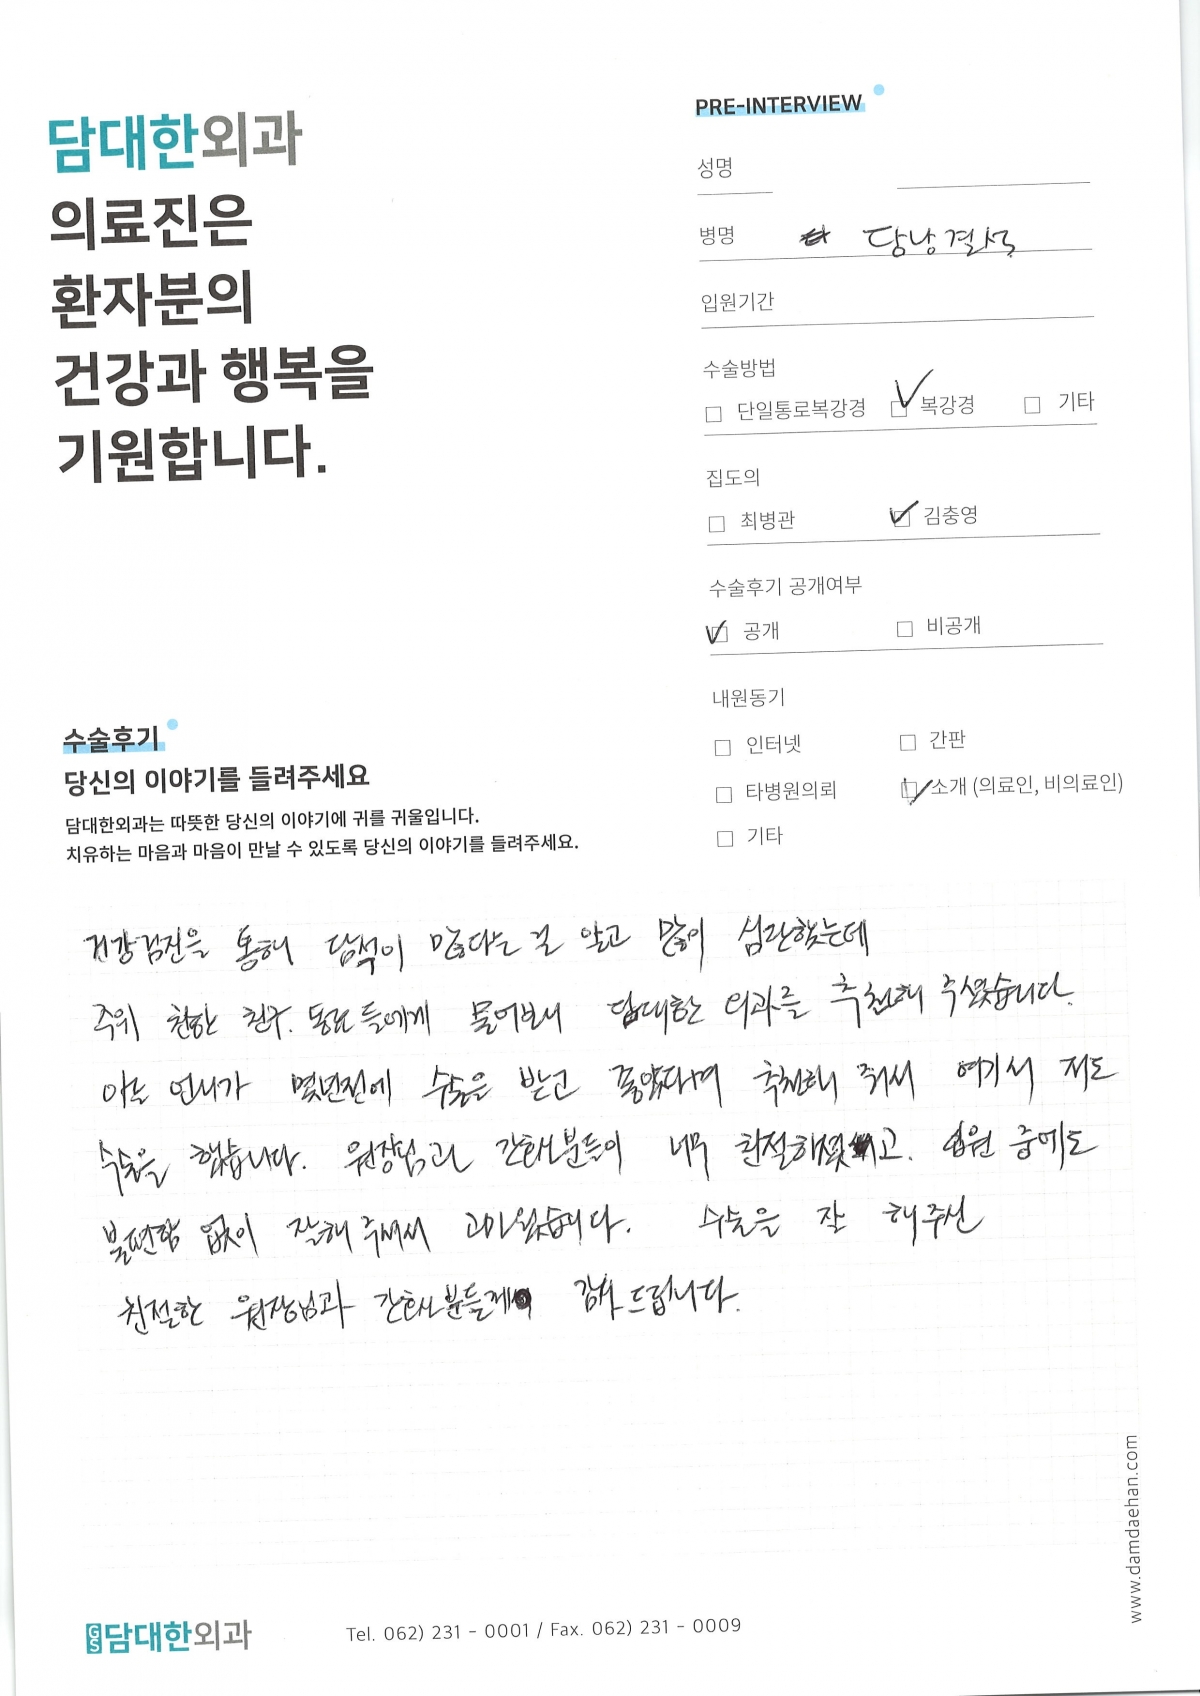 담대한외과
의료진은
환자분의
건강과 행복을
기원합니다.
PRE-INTERVIEW
성명
병명 담낭결석
입원기간
수술방법
□ 단일통로복강경 ☑ 복강경 □ 기타
집도의
□ 최병관 ☑ 김충영
수술후기 공개여부
☑ 공개 □ 비공개
내원동기
□ 인터넷 □ 간판
□ 타병원의뢰 ☑ 소개 (의료인, 비의료인)
□ 기타
수술후기
당신의 이야기를 들려주세요
담대한외과는 따뜻한 당신의 이야기에 귀를 귀울입니다.
치유하는 마음과 마음이 만날 수 있도록 당신의 이야기를 들려주세요.
건강검진을 통해 담석이 많다는 걸 알고 많이 심란했는데
주위 친한 친구. 동료들에게 물어보니 담대한 외과를 추천해 주셨습니다.
아는 언니가 몇년전에 수술을 받고 좋았다며 추천해 줘서 여기서 저도
수술을 했습니다. 원장님과 간호사분들이 너무 친절하셨고. 입원 중에도
불편함 없이 잘해 주셔서 고마웠습니다. 수술을 잘 해주신
친절한 원장님과 간호사분들께 감사드립니다.
GS 담대한외과
Tel. 062) 231 - 0001 / Fax. 062) 231 - 0009
www.damdaehan.com